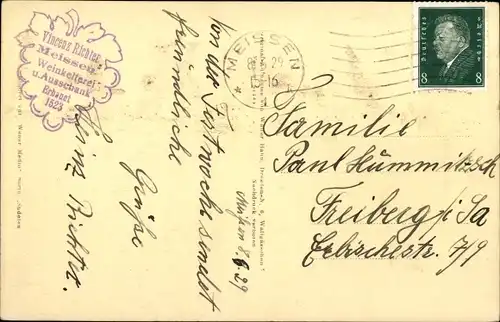 Vincenz Richter
Meissen
Weinkellerei
u. Ausschank
Erbaut
1523
MEISSEN
29
Deutsches
Reich
8 8
Meißen 8. 6. 29
Von der Festwoche sendet
freundliche
Grüße
Heinz Richter.
Familie
Paul Kümmitzsch
Freiberg i/Sa
Erbischestr. 7/9
Walter Hahn, Dresden-A.
Nachdruck verboten